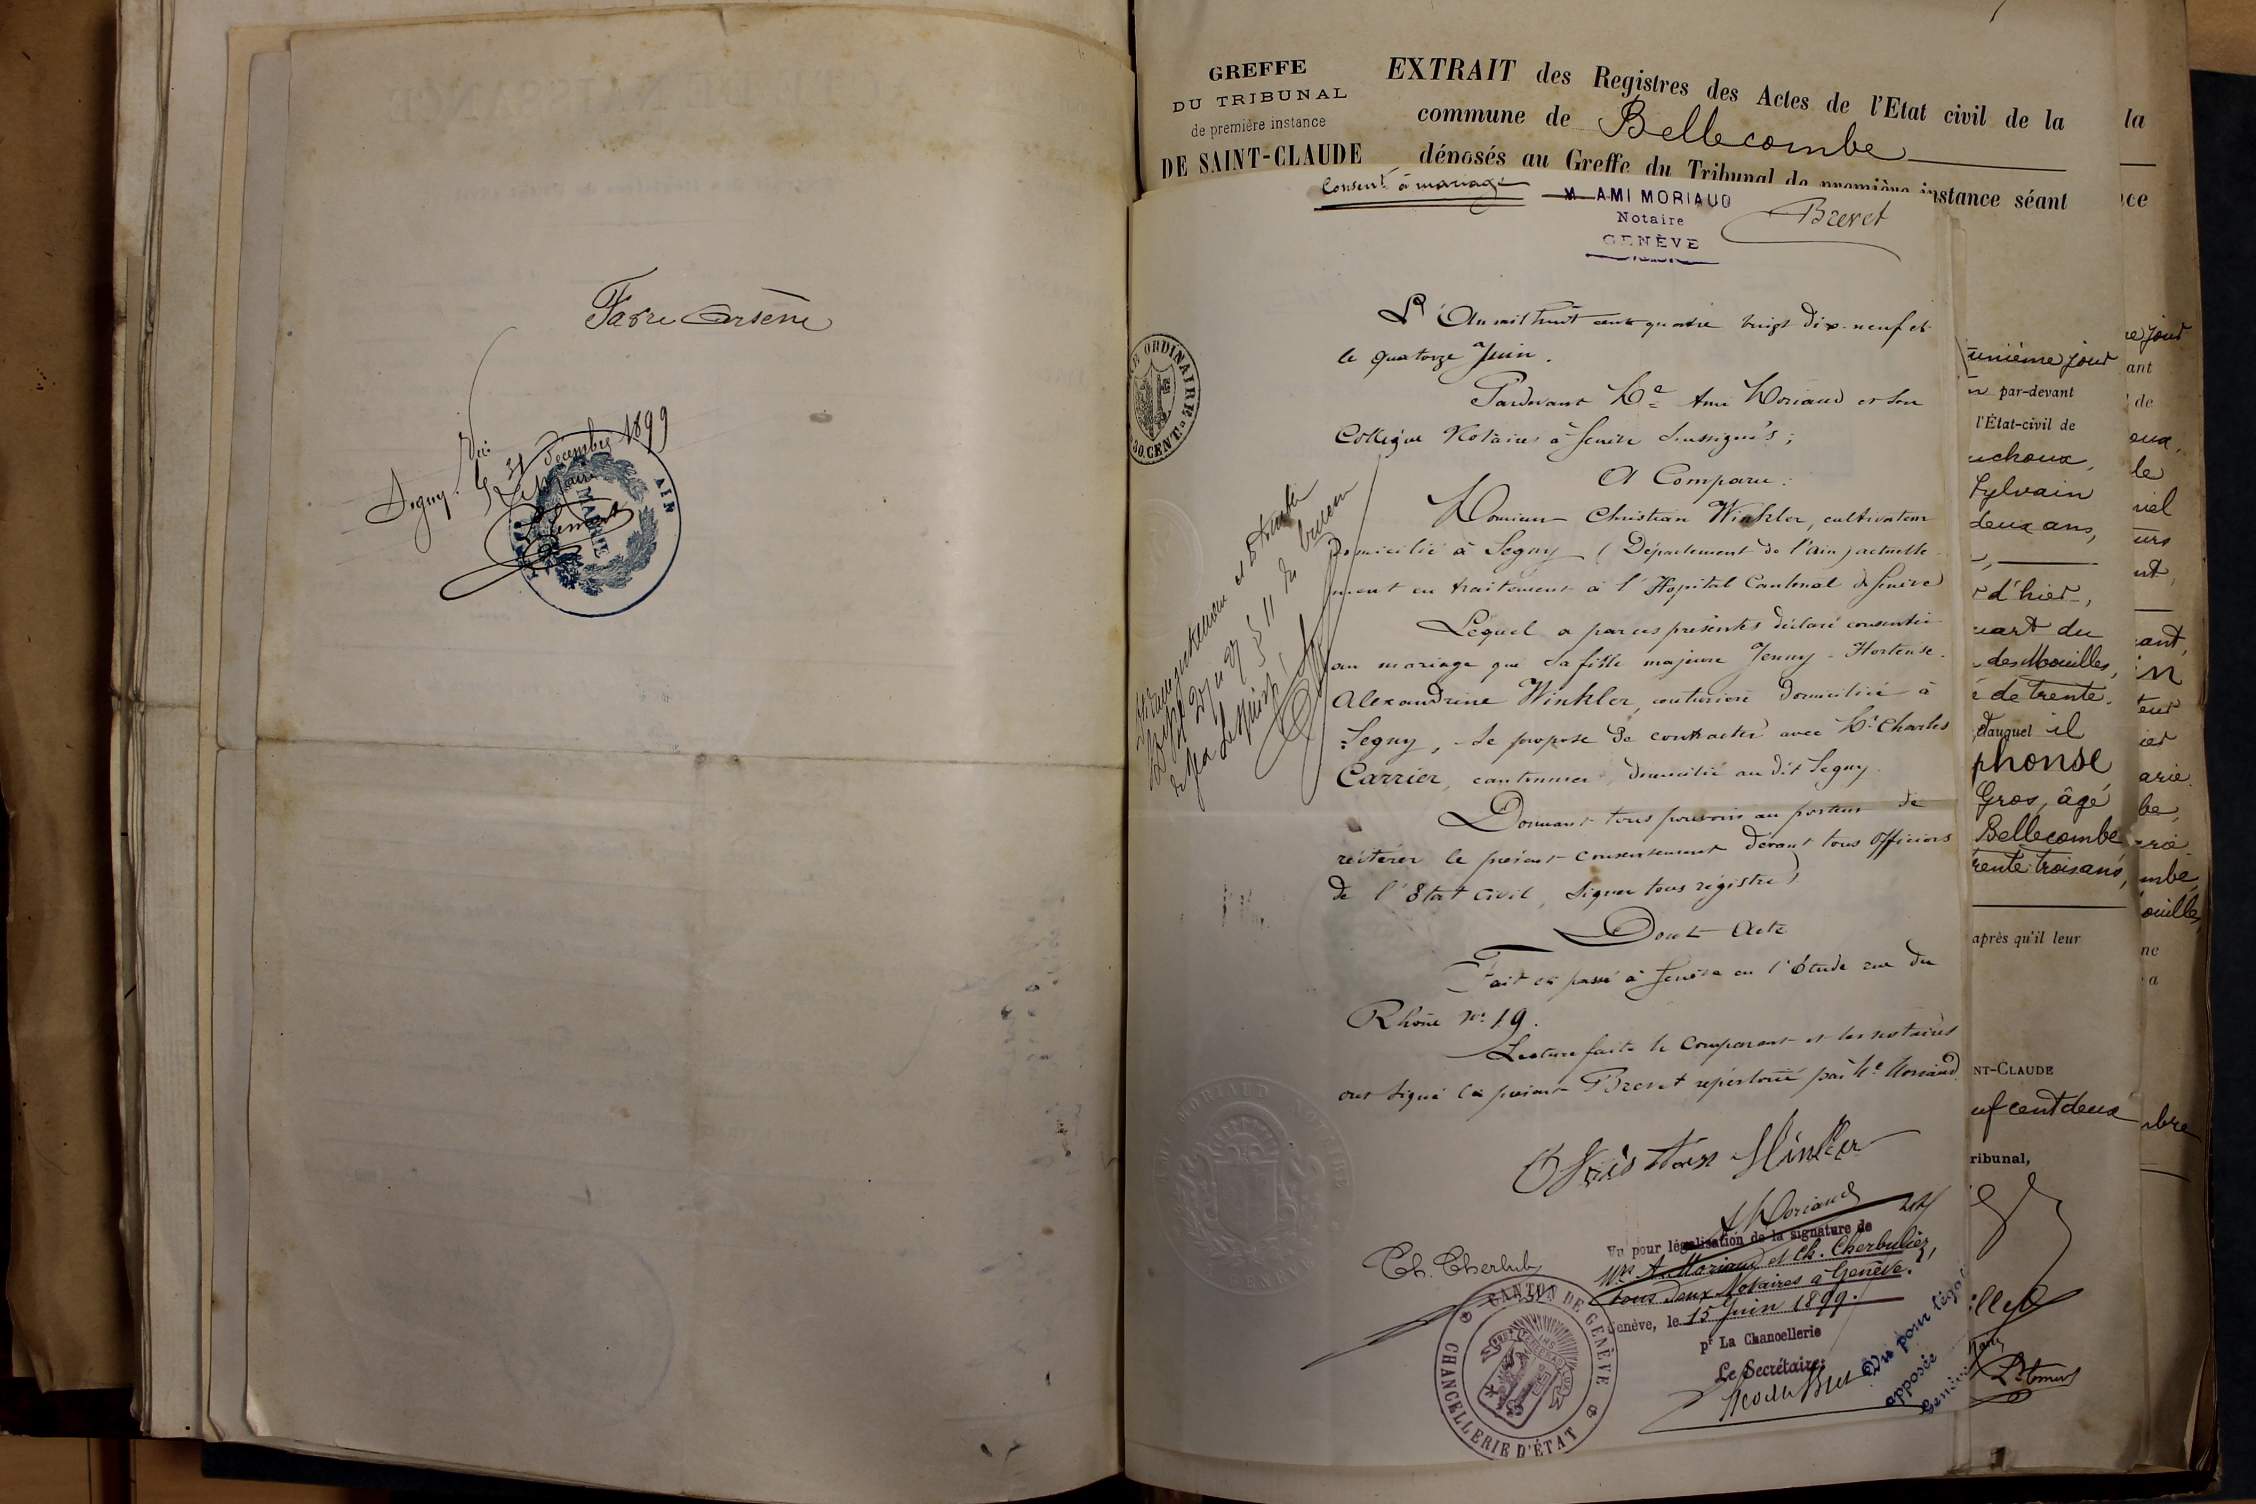 Favre Arsène
Vu
Segny le 31 Décembre 1899
Le Maire
MAIRIE
AIN
GREFFE
DU TRIBUNAL
de première instance
DE SAINT-CLAUDE
EXTRAIT des Registres des Actes de l'Etat civil de la
commune de Bellecombe
dénosés au Greffe du Tribunal de première instance séant
la
ce
Consent. à mariage
M. AMI MORIAUD
Notaire
GENÈVE
Brevet
ORDINAIRE
30. CENT.
L'An mil huit cent quatre vingt dix-neuf et
le quatorze Juin.
Pardevant Me Ami Moriaud et son
Collègue Notaires à Genève soussignés;
A Comparu:
Monsieur Christian Winkler, cultivateur
domicilié à Segny (Département de l'ain) actuelle-
ment en traitement à l'Hopital Cantonal de Genève
Lequel a par ces présentes déclaré consentir
au mariage que sa fille majeure Jenny-Hortense-
Alexandrine Winkler, couturière domiciliée à
Segny, se propose de contracter avec Mr Charles
Carrier, cantonnier, domicilié au dit Segny.
Donnant tous pouvoirs au porteur de
réitérer le présent consentement devant tous Officiers
de l'Etat Civil, signer tous registres
Dont Acte
Fait et passé à Genève en l'Etude rue du
Rhône No 19.
Lecture faite le Comparant et les notaires
ont signé le présent Brevet répertorié par Me Moriaud
Christian Winkler
A Moriaud
Ch. Cherbuliez
Vu pour légalisation de la signature de
Mrs A. Moriaud et Ch. Cherbuliez,
tous deux Notaires à Genève.
Genève, le 15 Juin 1899.
pr La Chancellerie
Le Secrétaire:
CANTON DE GENÈVE
CHANCELLERIE D'ÉTAT
Vu pour légal
apposée
Genève
unième jour
par-devant
l'État-civil de
uchoux,
Sylvain
deux ans,
d'hier,
quart du
des Mouilles,
de trente-
il
phonse
Gros, âgé
Bellecombe
trente trois ans,
après qu'il leur
NT-CLAUDE
uf cent deux
ribunal,
re jour
ant
de
oux,
le
niel
urs
ant,
in
teur
ier
arie
be,
rie
mbe,
ouilles,
ne
a
mbre